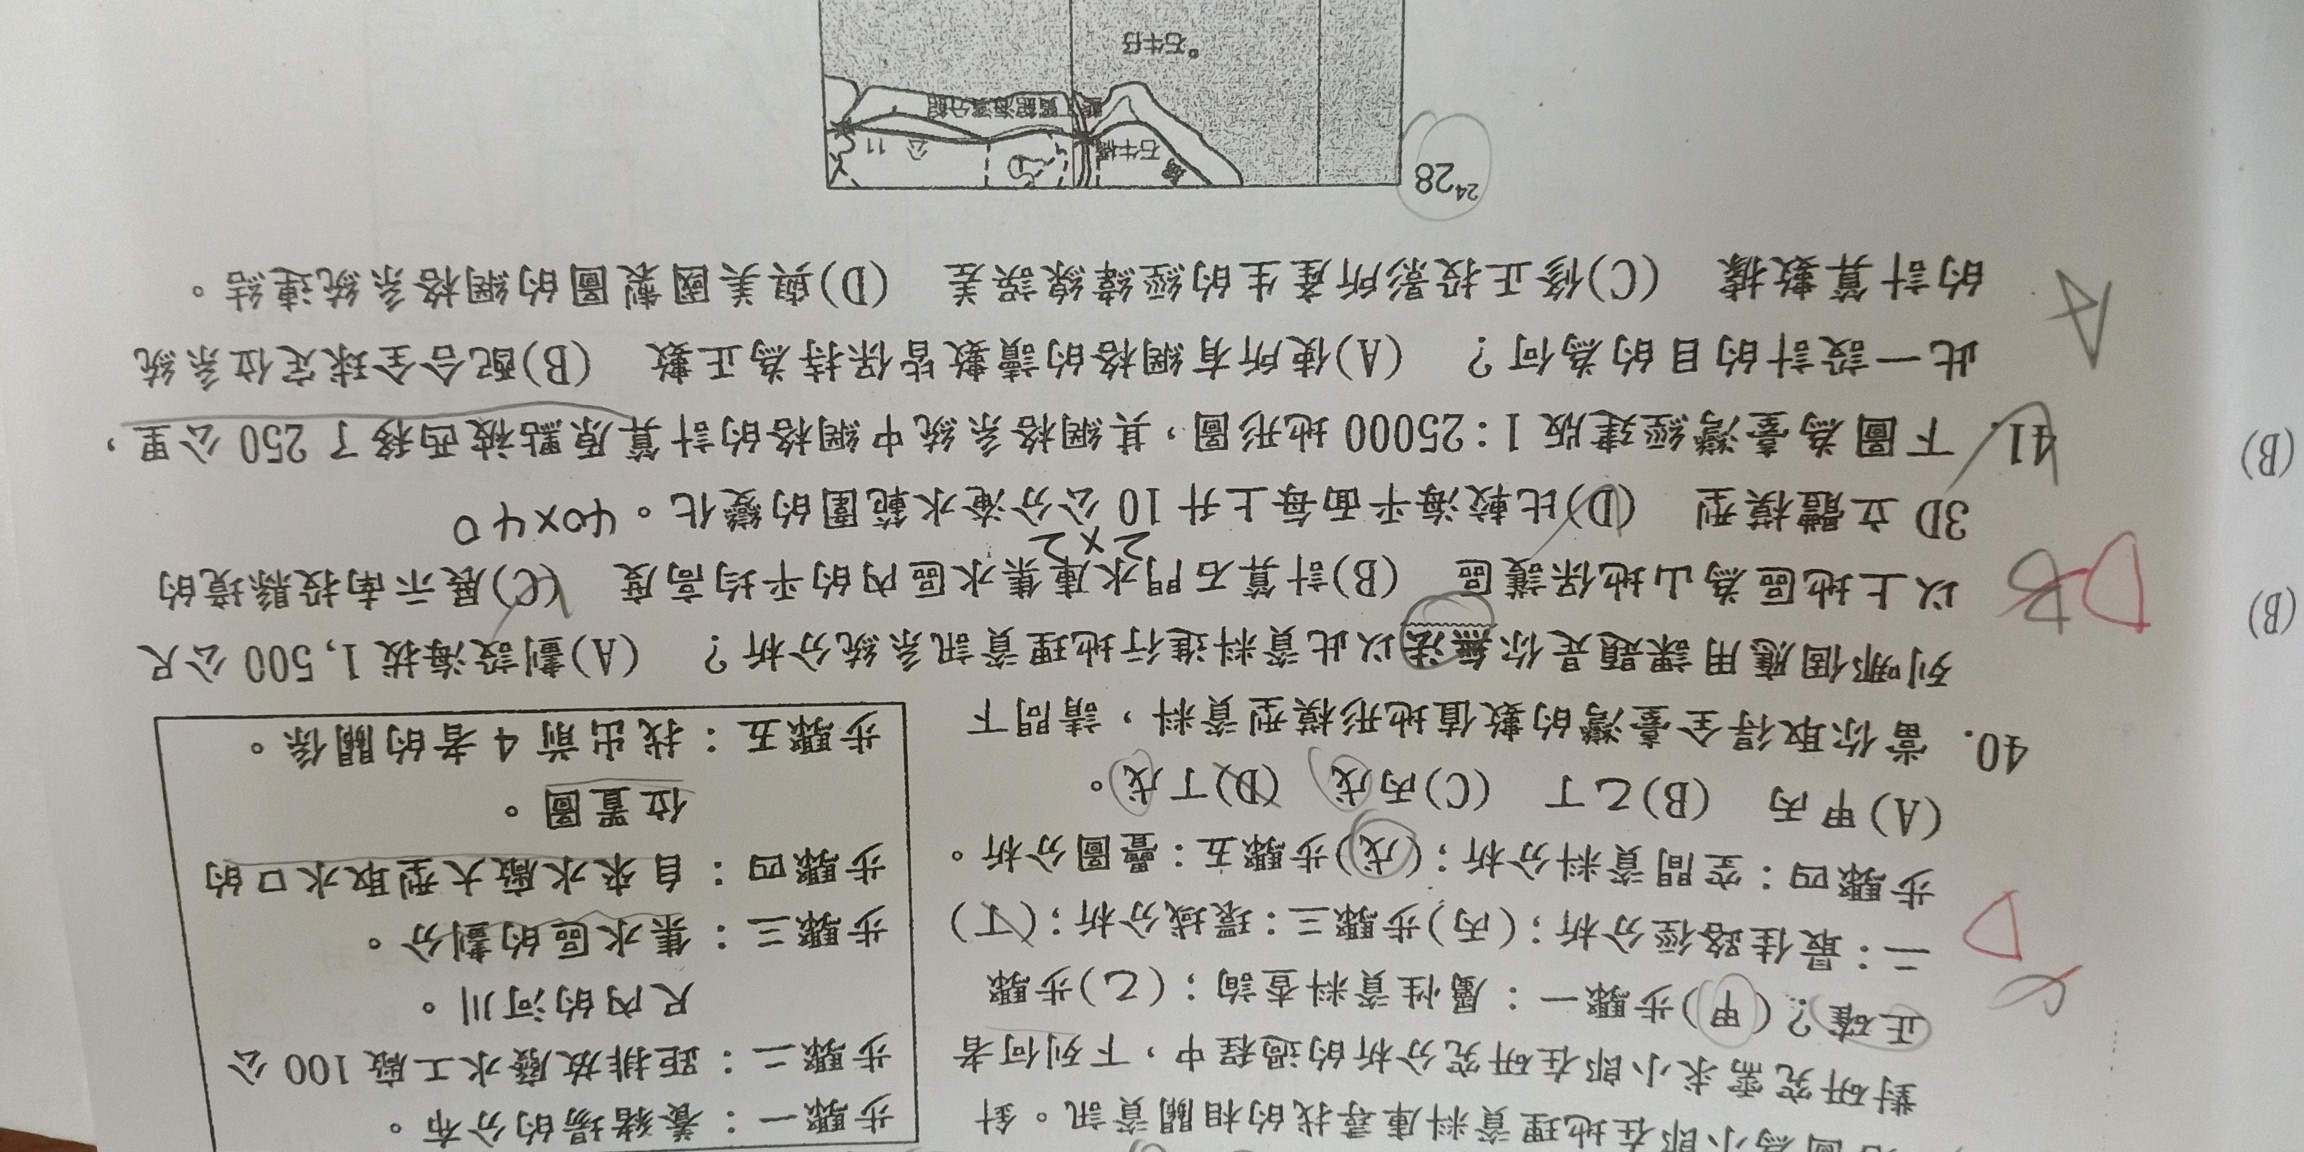 右圖為小郎在地理資料庫尋找的相關資訊。針
對研究需求小郎在研究分析的過程中，下列何者
正確？(甲)步驟一：屬性資料查詢；(乙)步驟
二：最佳路徑分析；(丙)步驟三：環域分析；(丁)
步驟四：空間資料分析；(戊)步驟五：疊圖分析。
(A)甲丙 (B)乙丁 (C)丙戊 (D)丁戊。
步驟一：養豬場的分布。
步驟二：距排放廢水工廠 100 公
尺內的河川。
步驟三：集水區的劃分。
步驟四：自來水廠大型取水口的
位置圖。
步驟五：找出前 4 者的關係。
D
40. 當你取得全臺灣的數值地形模型資料，請問下
列哪個應用課題是你無法以此資料進行地理資訊系統分析？ (A)劃設海拔 1,500 公尺
以上地區為山地保護區 (B)計算石門水庫集水區內的平均高度 (C)展示南投縣境的
2×2
3D 立體模型 (D)比較海平面每上升 10 公分淹水範圍的變化。 40×40
D B
41. 下圖為臺灣經建版 1：25000 地形圖，其網格系統中網格的計算原點被西移了 250 公里，
此一設計的目的為何？ (A)使所有網格的讀數皆保持為正數 (B)配合全球定位系統
的計算數據 (C)修正投影所產生的經緯線誤差 (D)與美國製圖的網格系統連結。
A
2428
石牛橋
公 11
石牛仔
(B)
(B)